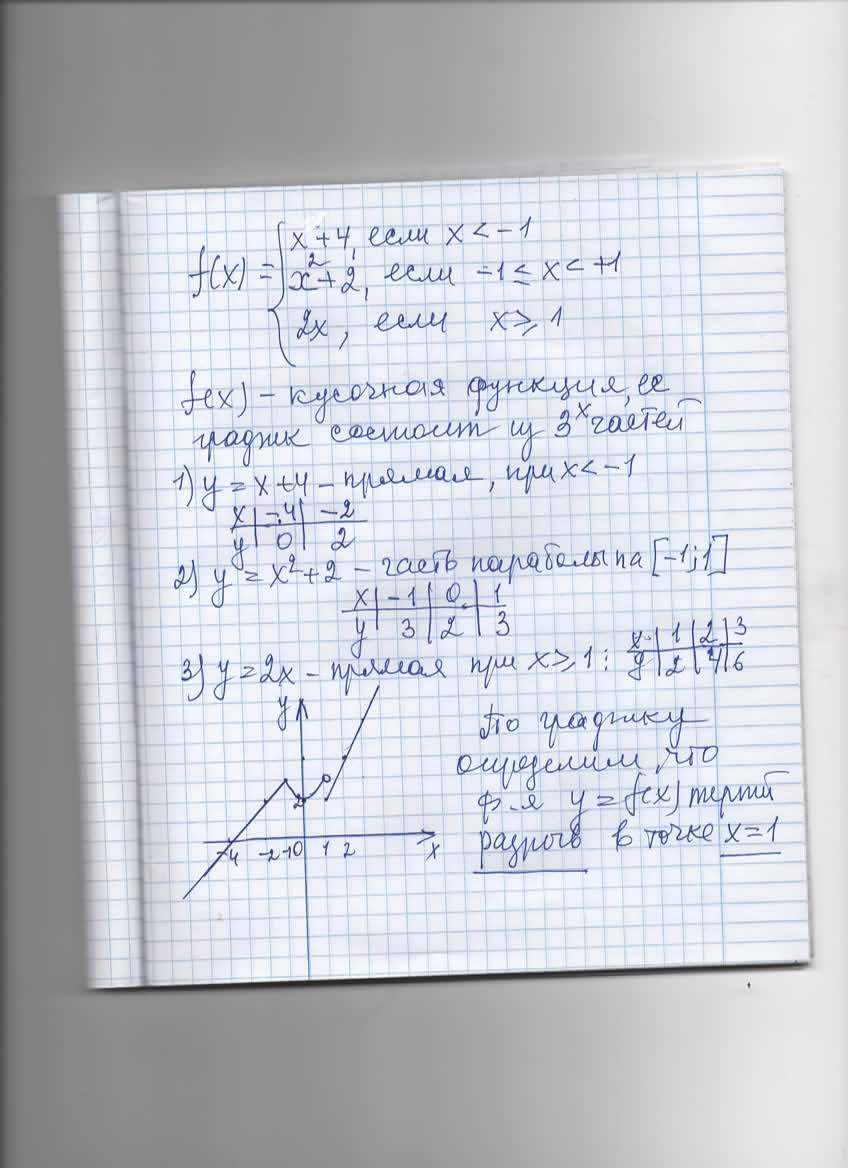 f(x) = { x + 4, если x < -1
x² + 2, если -1 ≤ x < +1
2x, если x ≥ 1
f(x) – кусочная функция, ее
график состоит из 3ˣ частей
1) y = x + 4 – прямая, при x < -1
x | -4 | -2
y | 0 | 2
2) y = x² + 2 – часть параболы на [-1; 1]
x | -1 | 0 | 1
y | 3 | 2 | 3
3) y = 2x – прямая при x ≥ 1 : x | 1 | 2 | 3
y | 2 | 4 | 6
y
2
-4 -2 -1 0 1 2 x
По графику
определим, что
ф-я y = f(x) терпит
разрыв в точке x = 1